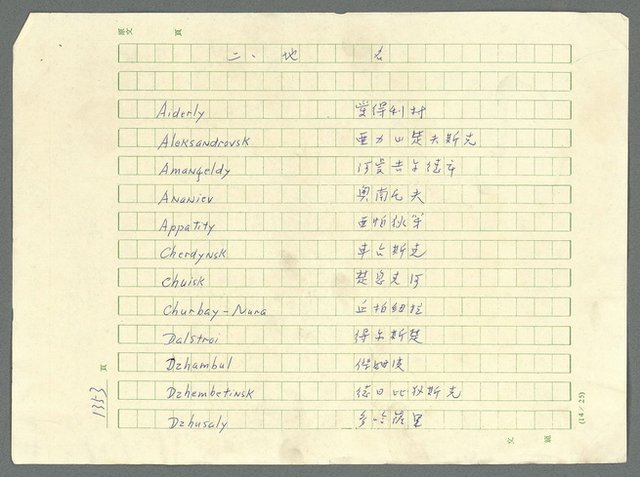 原文 頁
二、地 名
Aiderly 愛得利村
Aleksandrovsk 亞力山楚夫斯克
Amangeldy 阿曼吉尔德
Ananiev 奧南尼夫
Appatity 亞帕狄
Cherdynsk 車台斯克
Chuisk 楚恩克河
Churbay-Nura 丘柏紐拉
Dalstroi 得尔斯楚
Dzhambul
Dzhembetinsk 德日比狄斯克
Dzhusaly 里
頁
1353
(14／25)
文 總